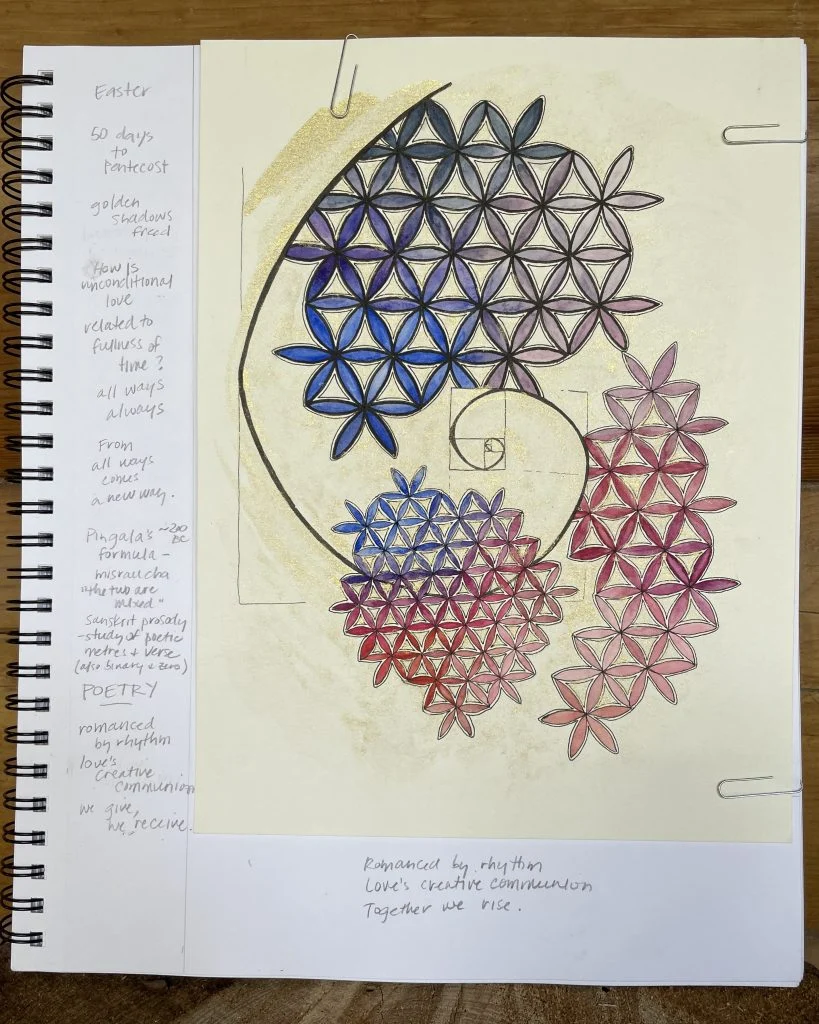 Easter
50 days
to
Pentecost
golden
shadows
freed
How is
unconditional
love
related to
fullness of
time?
all ways
always
From
all ways
comes
a new way.
Pingala's ~200 BC
formula –
misraucha
"the two are
mixed"
Sanskrit prosody
- study of poetic
metres + verse
(also binary + zero)
POETRY
romanced
by rhythm
love's
creative
communion
we give,
we receive.
Romanced by rhythm
Love's creative communion
Together we rise.